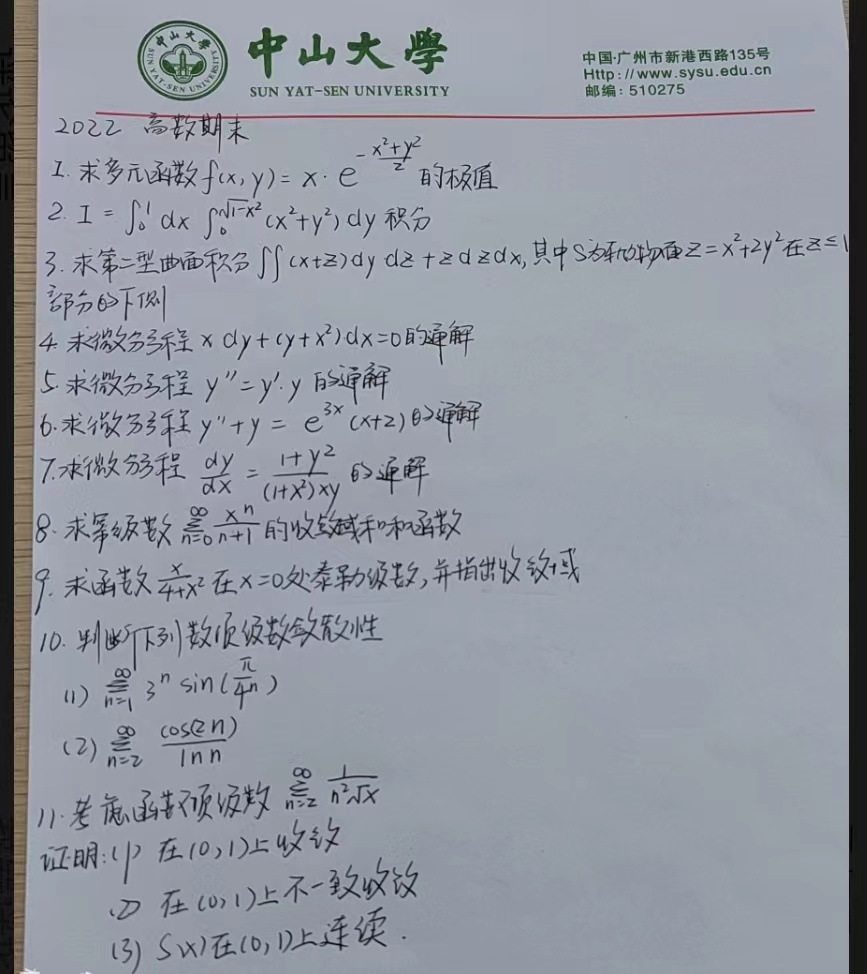 中山大學
SUN YAT-SEN UNIVERSITY
中国·广州市新港西路135号
Http://www.sysu.edu.cn
邮编: 510275
2022 高数期末
1. 求多元函数 f(x, y) = x · e^{-\frac{x²+y²}{2}} 的极值
2. I = ∫₀¹ dx ∫₀^{√(1-x²)} (x²+y²) dy 积分
3. 求第二型曲面积分 ∬(x+z) dy dz + z dz dx, 其中S为抛物面 z = x²+2y² 在 z ≤ 1
部分的下侧
4. 求微分方程 x dy + (y+x²) dx = 0 的通解
5. 求微分方程 y'' = y'·y 的通解
6. 求微分方程 y'' + y = e^{3x} (x+2) 的通解
7. 求微分方程 \frac{dy}{dx} = \frac{1+y²}{(1+x²)xy} 的通解
8. 求幂级数 \sum_{n=0}^{∞} \frac{x^n}{n+1} 的收敛域和和函数
9. 求函数 \frac{x}{4+x²} 在 x=0 处泰勒级数, 并指出收敛域
10. 判断下列数项级数敛散性
(1) \sum_{n=1}^{∞} 3^n sin(\frac{π}{4^n})
(2) \sum_{n=2}^{∞} \frac{cos(2n)}{ln n}
11. 考虑函数项级数 \sum_{n=2}^{∞} \frac{1}{n²√x}
证明: (1) 在(0,1)上收敛
(2) 在(0,1)上不一致收敛
(3) S(x)在(0,1)上连续.